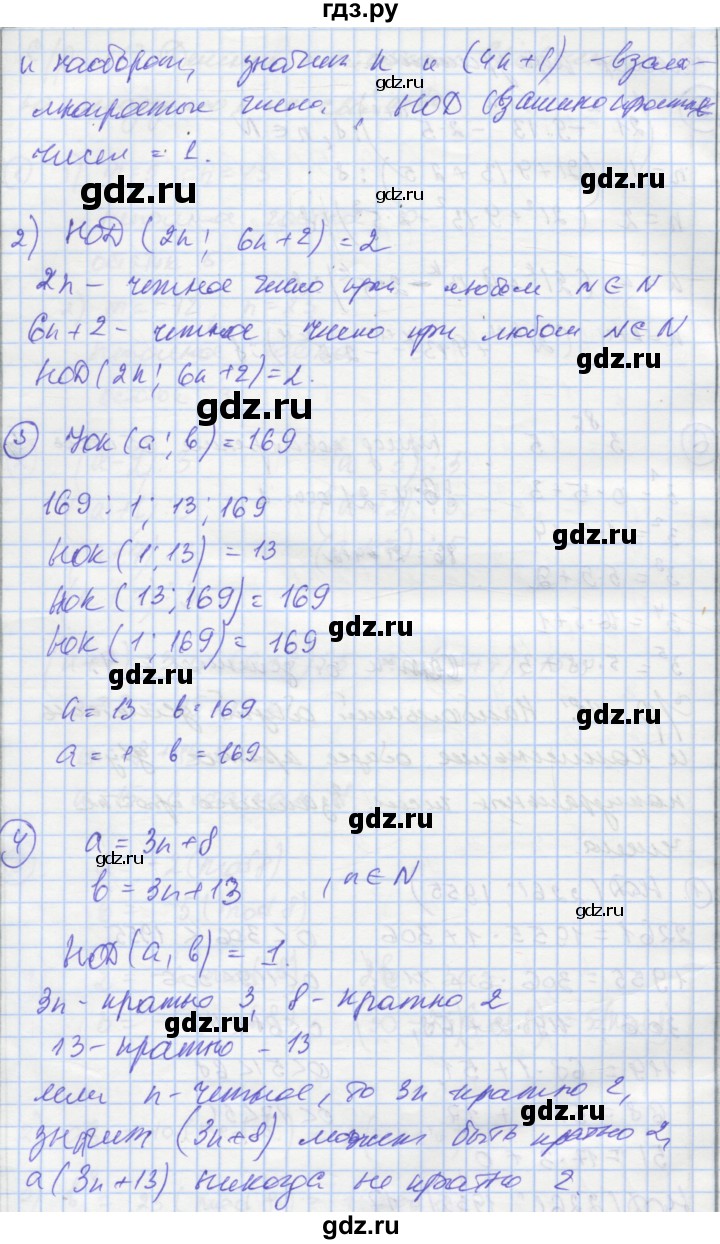 гдз.ру
и наоборот, значит n и (4n+1) - взаи-
gdz.ru
мнопростые числа, НОД (взаимно простых
чисел = 1.
gdz.ru
gdz.ru
gdz.ru
2) НОД (2n; 6n+2) = 2
2n - четное число при любом N∈N
6n+2 - четное число при любом N∈N
gdz.ru
НОД(2n; 6n+2)=2.
gdz.ru
3 НОК (a; b) = 169
169 : 1; 13; 169
gdz.ru
НОК (1; 13) = 13
НОК (13; 169) = 169
gdz.ru
НОК (1; 169) = 169
gdz.ru
a = 13 b = 169
gdz.ru
a = 1 b = 169
gdz.ru
4 a = 3n+8
gdz.ru
b = 3n+13 , n∈N
gdz.ru
НОД(a, b) = 1.
3n - кратно 3, 8 - кратно 2
gdz.ru
13 - кратно - 13
если n - четное, то 3n кратно 2,
gdz.ru
значит (3n+8) может быть кратно 2,
а (3n+13) никогда не кратно 2.
gdz.ru
gdz.ru